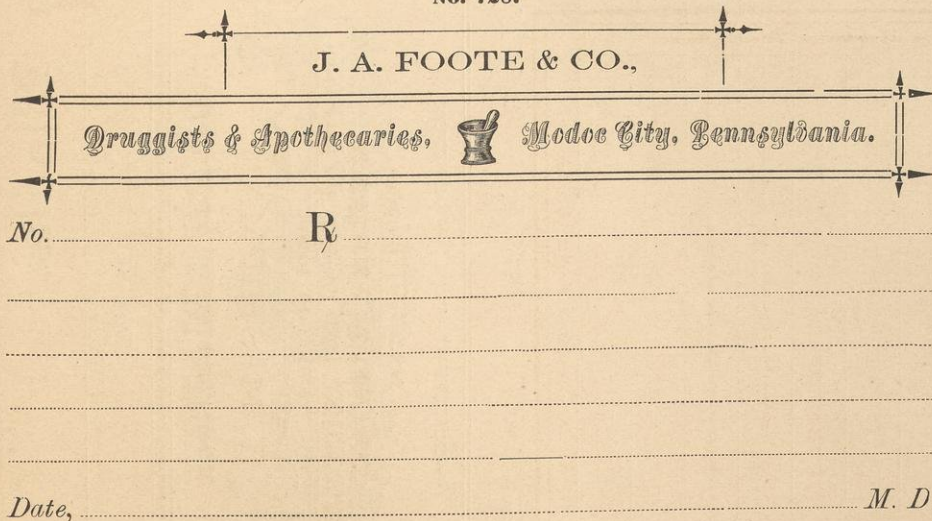 J. A. FOOTE & CO.,
Druggists & Apothecaries, Modoc City, Pennsylvania.
No. ℞
Date, M. D